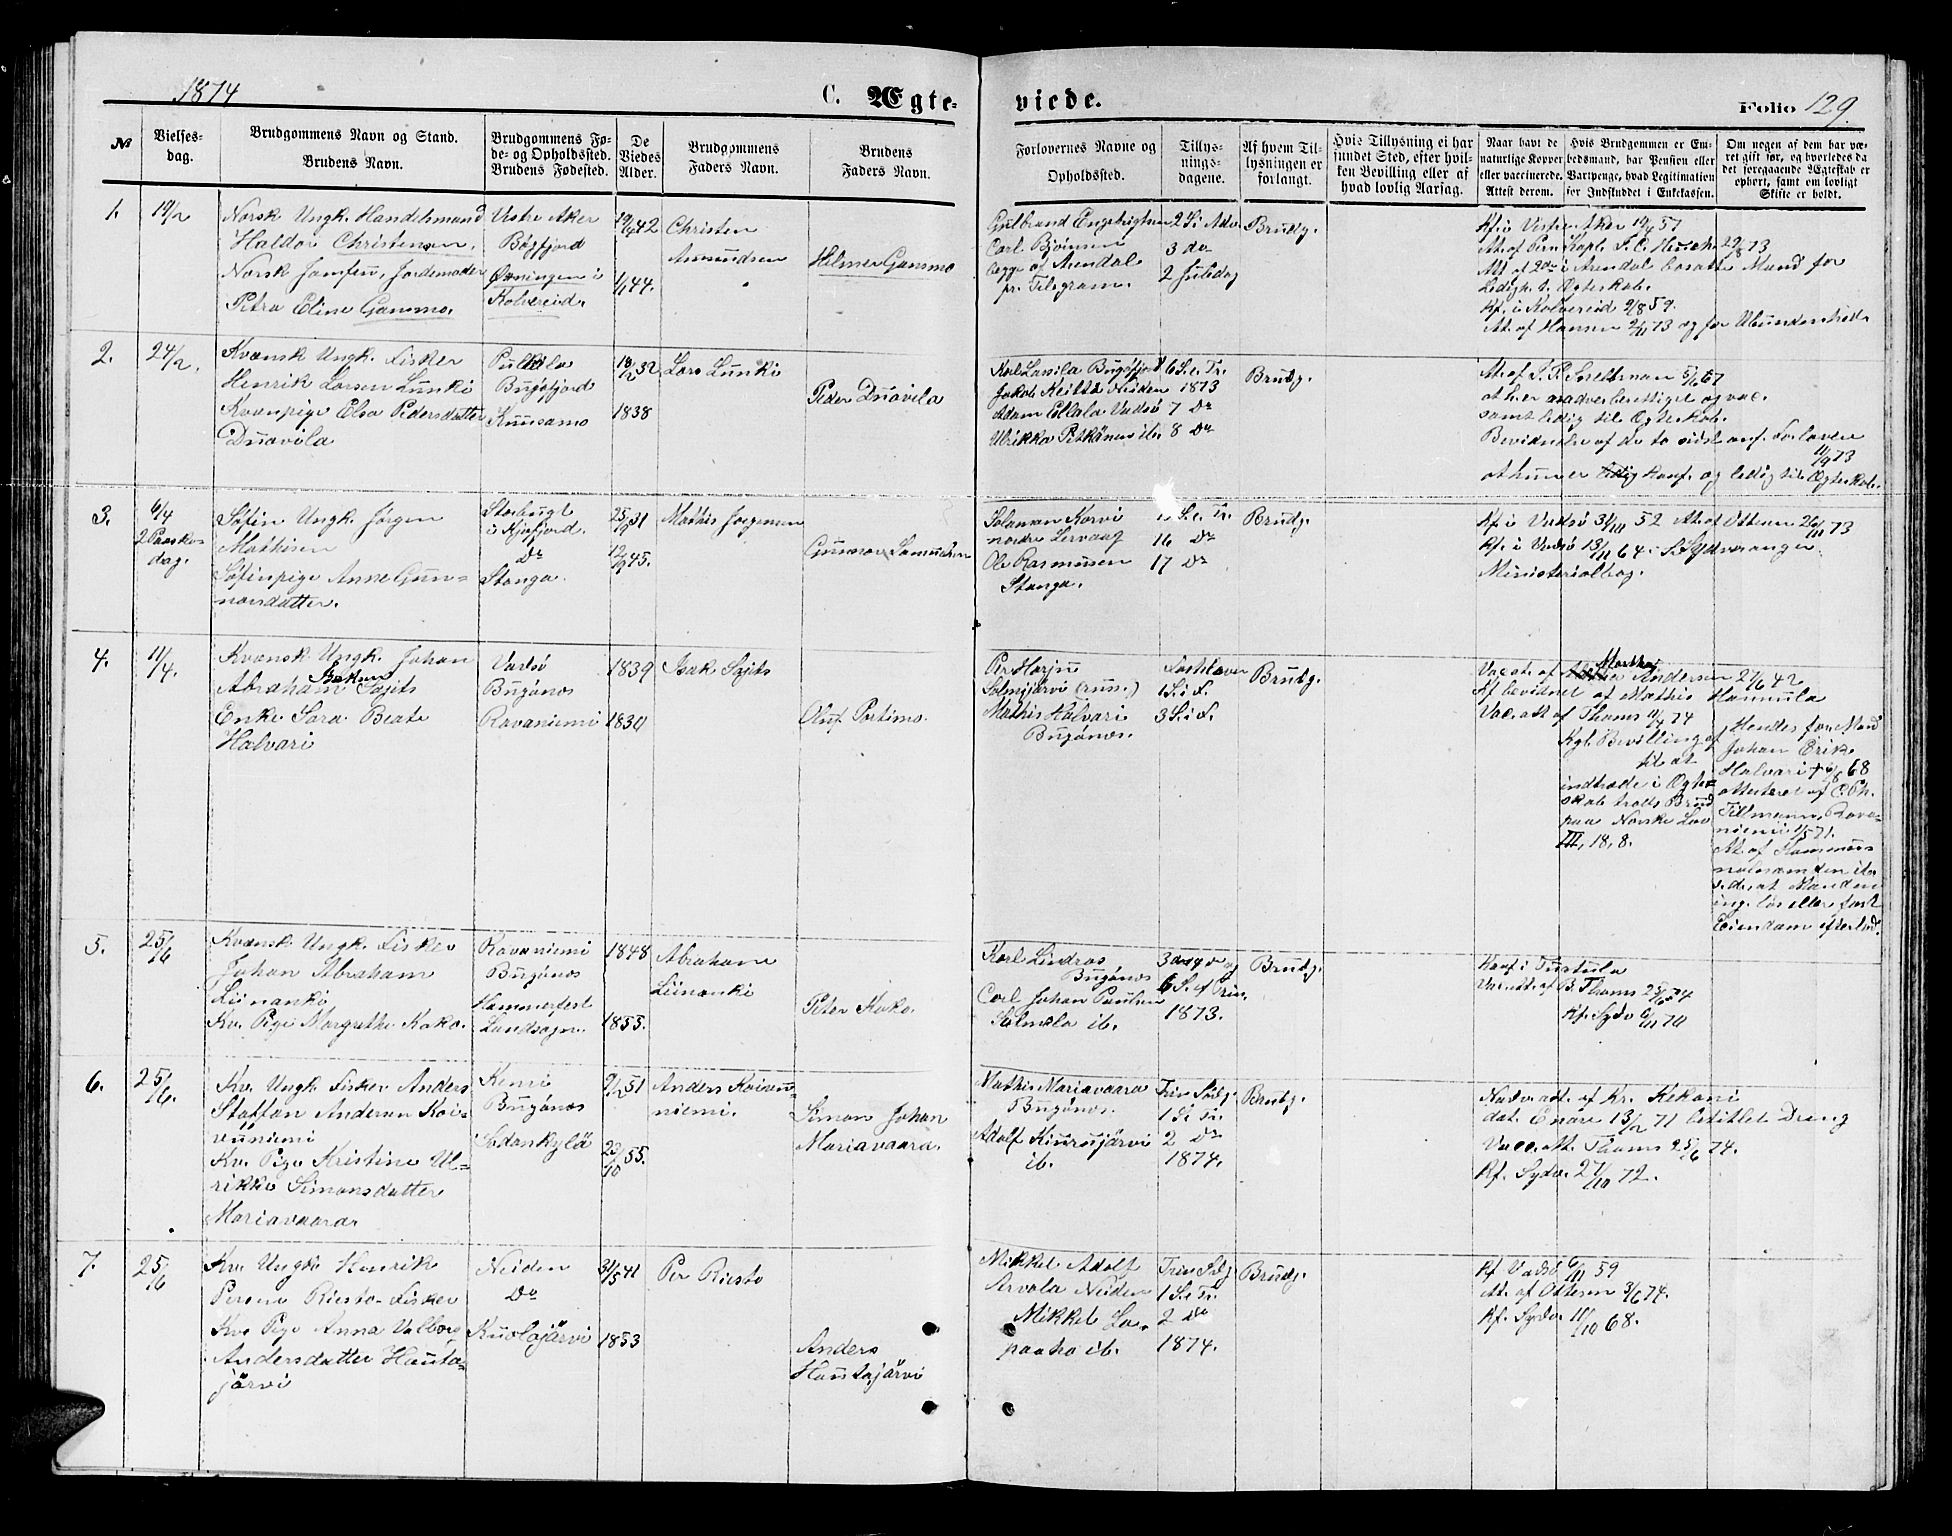 1874
C. Ægte-
viede.
Folio 129.
№
Vielses-
dag.
Brudgommens Navn og Stand.
Brudens Navn.
Brudgommens Fø-
de- og Opholdssted.
Brudens Fødested.
De
Viedes
Alder.
Brudgommens
Faders Navn.
Brudens
Faders Navn.
Forlovernes Navne og
Opholdssted.
Tillys-
nings-
dagene.
Af hvem Til-
lysningen er
forlangt.
Hvis Tillysning ei har
fundet Sted, efter hvil-
ken Bevilling eller af
hvad lovlig Aarsag.
Naar havt de
naturlige Kopper
eller vaccinerede.
Attest derom.
Hvis Brudgommen er Em-
bedsmand, har Pension eller
Vartpenge, hvad Legitimation
for Indskuddet i Enkekassen.
Om nogen af dem har væ-
ret gift før, og hvorledes da
det foregaaende Ægteskab er
ophørt, samt om lovligt
Skifte er holdt.
1.
19/2
Norsk Ungk. Handelsmand
Haldor Christensen.
Norsk Jomfru, Jordemoder
Petra Eline Gansmo.
Vestre Aker
Bøgfjord
Øvningen i
Kolvereid.
19/4 42
1/1 44.
Christen
Amundsen
Helmer Gansmo
Gulbrand Engebrigtsen
Carl Bjørnsen
begge af Arendal
pr. Telegram.
2 S. i Adv
3 do
2 Juledag
Brudg.
Kf. i Vestre Aker 57
At. af Pers. Kapl. 73
At. af 2de i Arendal bosatte Mænd for
Ledigh. t. Ægteskab.
Kf. i Kolvereid 9/8 59.
At. af Hansen 2/11 73 og for Ubundenhed
2.
24/2.
Kvænsk Ungk. Fisker
Henrik Larsen Lunki
Kvænpige Elsa Pedersdatter
Duavila
Pulkila
Bugøfjord
Kuusamo
18/2 32
1838
Lars Lunki
Peder Duavila
Karl Lassila Bugøfjord
Jakob Keitti Neiden
Adam Ellala Vadsø
Ulrikka Pitkänen ib.
6 S. e. Tr.
1873
7 Do
8 Do
Brudg.
At. af 5/6 67
at han er nadverberettiget og vac.
samt ledig til Ægteskab.
Bevidnelse af de to sidst anf. Forlovere
11/9 73
at hun er konf. og ledig til Ægteskab.
3.
6/4
2 Paaske
dag.
Søfin Ungk. Jørgen
Mathisen
Søfinpige Anne Gun-
narsdatter.
Storbugt
i Kjøfjord.
Do
Stonga.
25/9 31
12/9 45.
Mathis Jørgensen
Gunnar Samuelsen
Salaman Korvi
nordre Lervaag
Ole Rasmussen
Stonga.
S. e. Tr.
16 Do
17 Do
Brudg.
Kf. i Vadsø 31/10 52 At. af Ottesen 26/11 73
Kf. i Vadsø 13/11 64 i S. Sydvaranger
Ministerialbog.
4.
11/4.
Kvænsk Ungk. Johan
Abraham Isaksen Sajets
Enke Sara Beate
Halvari
Vadsø
Bugønæs
Rovaniemi
1839
1830
Isak Sajets
Oluf Portimo.
Per Harju
Solmijärvi (rus.)
Mathis Halvari
Bugønæs.
Fastelavn
1 S. i F.
3 S. i F.
Brudg.
Vac. at. af Andersen 27/6 42
Kf. bevidnet af Mathis Hannula
Vac. att. af Thams 11/4 74
Kgl. Bevilling af
til at
indtræde i Ægte-
skab trods Brud
paa Norske Lov
III, 18, 8.
Hendes forr. Mand
Johan Erik
Halvari † 68
attesteret af
Tillmann, Rova-
niemi 1/5 71.
At. af
at Manden
ing. løs eller fast
Eiendom efterlod.
5.
25/6
Kvænsk Ungk. Fisker
Johan Abraham
Liinanki
Kv. Pige Margrethe Koko.
Rovaniemi
Bugønæs
Hammerfest
Landsogn.
1848
1855.
Abraham
Liinanki
Peter Koko.
Karl Lindros
Bugønæs
Carl Johan Paulsen
Salmela ib.
6 S. ef Trin.
1873.
Brudg.
Konf. i Turtula
Vac. att. af B. Thams 25/6 74
Kf. Sydv 6/11 70
6.
25/6.
Kv. Ungk. Fisker Anders
Staffan Andersen Koi-
vuniemi
Kv. Pige Kristine Ul-
rikke Simonsdatter
Mariavaara
Kemi
Bugønæs
Sodankylä
9/12 51
23/10 55.
Anders Koivu-
niemi.
Simon Johan
Mariavaara.
Mathis Mariavaara
Bugønæs.
Adolf Kiurujärvi
ib.
Trin Sødg.
1 S. e. Tr.
2 Do
1874.
Brudg.
Nadv. att. af Kr. Kekoni
dat. Enare 13/2 71 betitlet Dreng
Vacc. att. Thams 25/6 74.
Kf. Sydv. 27/10 72.
7.
25/6
Kv. Ungk. Henrik
Persen Riesto Fisker
Kv. Pige Anna Valborg
Andersdatter Hauta-
järvi
Neiden
Do
Kuolajärvi
31/5 41
1853
Per Riesto
Anders
Hautajärvi
Mikkel Adolf
Arvola Neiden
Mikkel La-
paaho ib.
Trin Sødg
1 S. e. Tr.
2 Do
1874.
Brudg.
Kf Vadsø 6/11 59
At. af Ottesen 3/6 74.
Kf. Sydv 11/10 68.